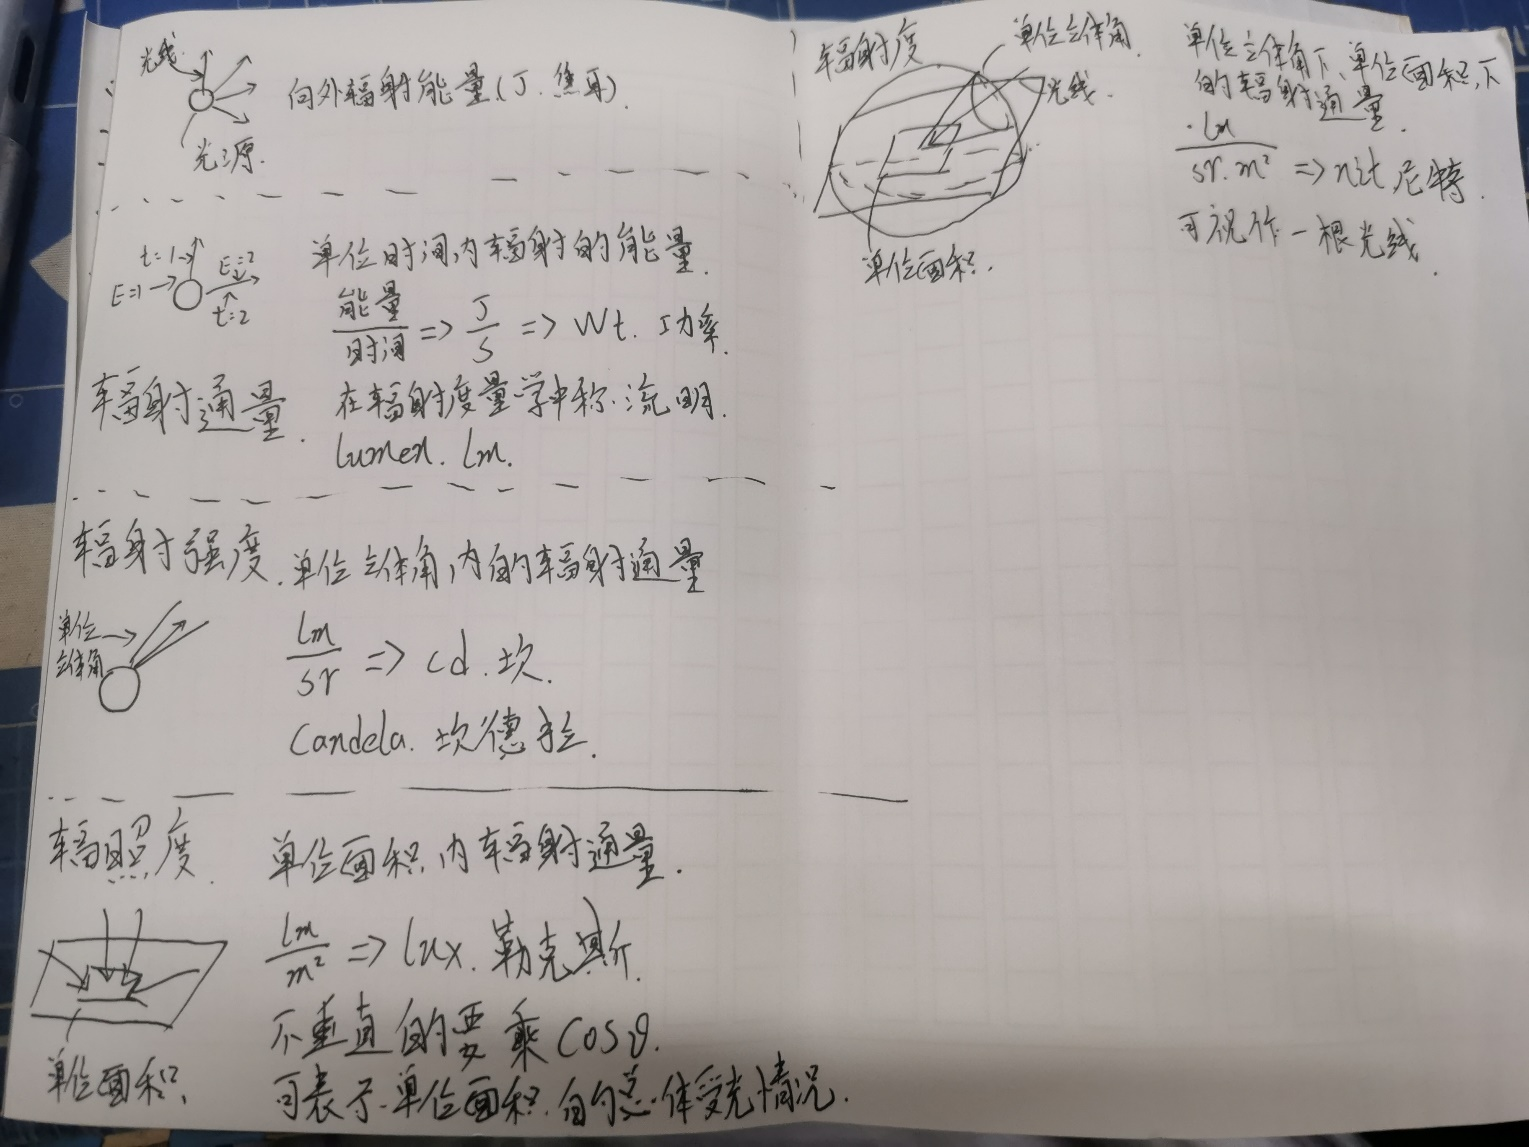 光线
向外辐射能量(J.焦耳).
光源.
t=1
E=1
E=2
t=2
单位时间内辐射的能量.
能量
时间
=> J/s => Wt. 功率.
辐射通量.
在辐射度量学中称.流明.
lumen. lm.
辐射强度.
单位立体角内的辐射通量
单位
立体角
lm/sr => cd.坎.
Candela. 坎德拉.
辐照度.
单位面积内辐射通量.
lm/m² => lux. 勒克斯.
不垂直的要乘cosθ.
单位面积.
可表示.单位面积.的总体受光情况.
辐射度
单位立体角.
光线.
单位面积.
单位立体角下、单位面积下
的辐射通量.
lm/sr.m² => nit 尼特.
可视作一根光线.